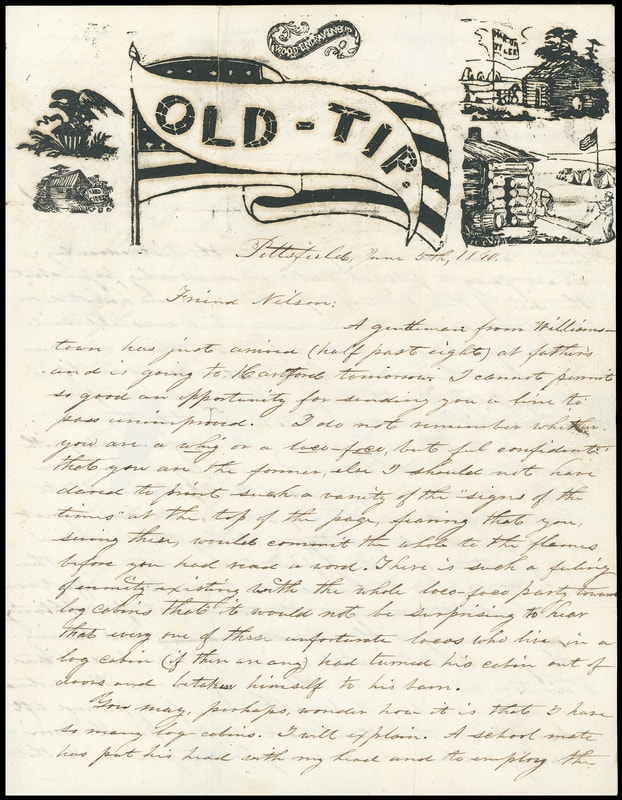 WOOD ENGRAVINGS
OLD-TIP.
Pittsfield, June 5th, 1840.
Friend Nelson:
A gentleman from Williams-
town has just arrived (half past eight) at father's
and is going to Hartford tomorrow. I cannot permit
so good an opportunity for sending you a line to
pass unimproved. I do not remember whether
you are a whig or a loco-foco, but ful confident
that you are the former, else I should not have
dared to print such a variety of the "signs of the
times" at the top of the page, fearing that you,
seeing these, would commit the whole to the flames
before you had read a word. There is such a feeling
of enmity existing with the whole loco-foco party toward
log cabins that it would not be surprising to hear
that every one of those unfortunate locos who live in a
log cabin (if there are any) had turned his cabin out of
doors and himself to his barn.
You may, perhaps, wonder how it is that I have
so many log cabins. I will explain. A school mate
has put his head with my head and to employ the